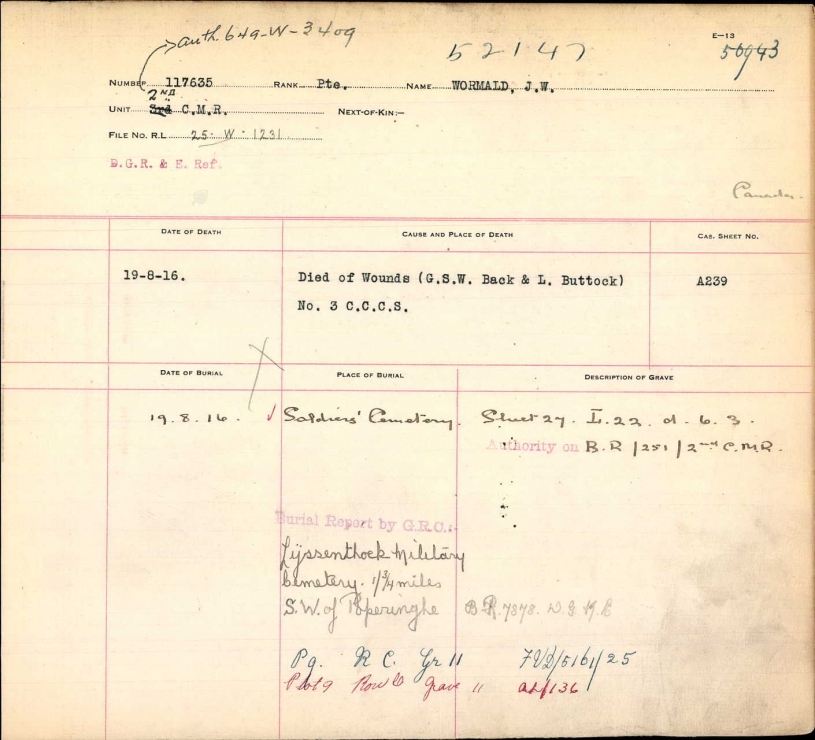 auth. 649-W-3409
E-13
52147
50943
NUMBER 117635 RANK Pte. NAME WORMALD, J.W.
2ND
UNIT 3rd C.M.R. NEXT-OF-KIN:-
FILE NO. R.L 25-W-1231
D.G.R. & E. Ref.
Canada.
DATE OF DEATH CAUSE AND PLACE OF DEATH CAS. SHEET NO.
19-8-16. Died of Wounds (G.S.W. Back & L. Buttock) A239
No. 3 C.C.C.S.
DATE OF BURIAL PLACE OF BURIAL DESCRIPTION OF GRAVE
19.8.16. Soldiers' Cemetery. Sheet 27. L.22.d.6.3.
Authority on B.R/251/2nd C.M.R.
Burial Report by G.R.C.:-
Lijssenthock Military
Cemetery. 1¾ miles
S.W. of Poperinghe B.R. 7878.
Pg. R C. Gr 11
Plot 9 Row C grave 11